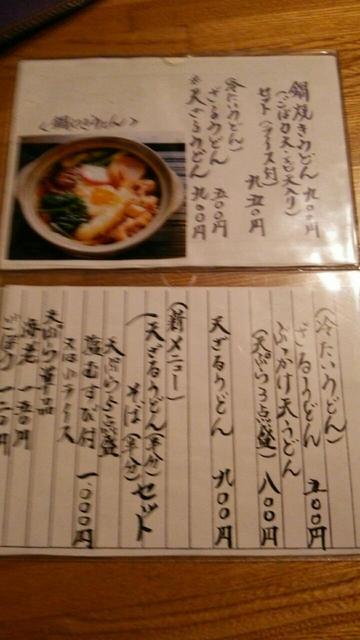 鍋焼きうどん 九〇〇円
(ごぼう天・えび天入り)
セット(ライス付)
九五〇円
(冷たいうどん)
ざるうどん 五〇〇円
天ざるうどん 九〇〇円
<鍋焼きうどん>
(冷たいうどん)
ざるうどん 五〇〇円
ぶっかけ天うどん
(天ぷら3点盛) 八〇〇円
天ざるうどん 九〇〇円
(新メニュー)
天ざるうどん(半分)セット
そば(半分)
天ぷら5点盛
塩むすび付 一、〇〇〇円
又は小ライス
天ぷら単品
海老 一五〇円
ごぼう 一五〇円